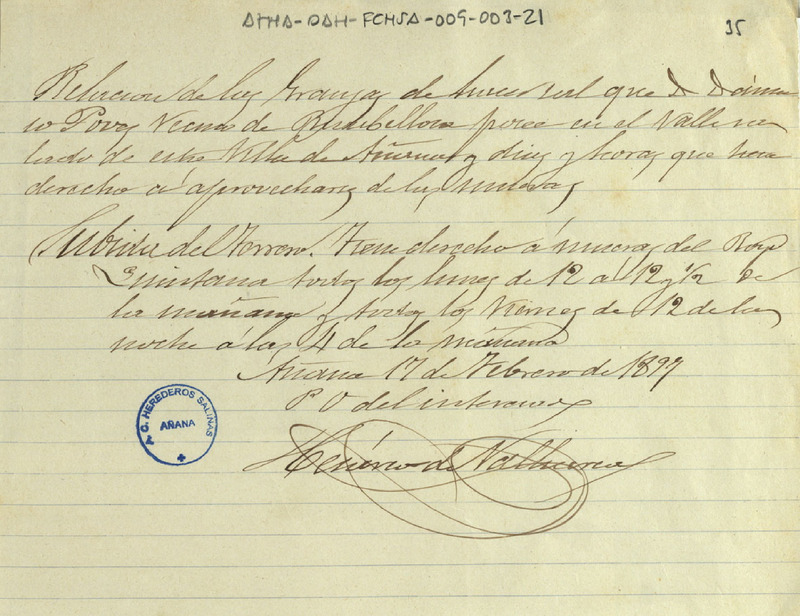 ATHA-DAH-FCHSA-009-003-21
35
Relacion de las Granjas de hacer sal que D Dámaso
Povez Vecino de Ribabellosa posee en el Valle salado
de esta Villa de Añana, y dias y horas que tiene
derecho á aprovecharse de las mueras
Subida del Terrero. Tiene derecho á mueras del Royo
Quintana todos los lunes de 12 a 12 y 1/2 de
la mañana y todos los Viernes de 12 de la
noche a las 4 de la mañana
Añana 17 de Febrero de 1897
P O del interesado
de
A. C. HEREDEROS SALINAS
AÑANA